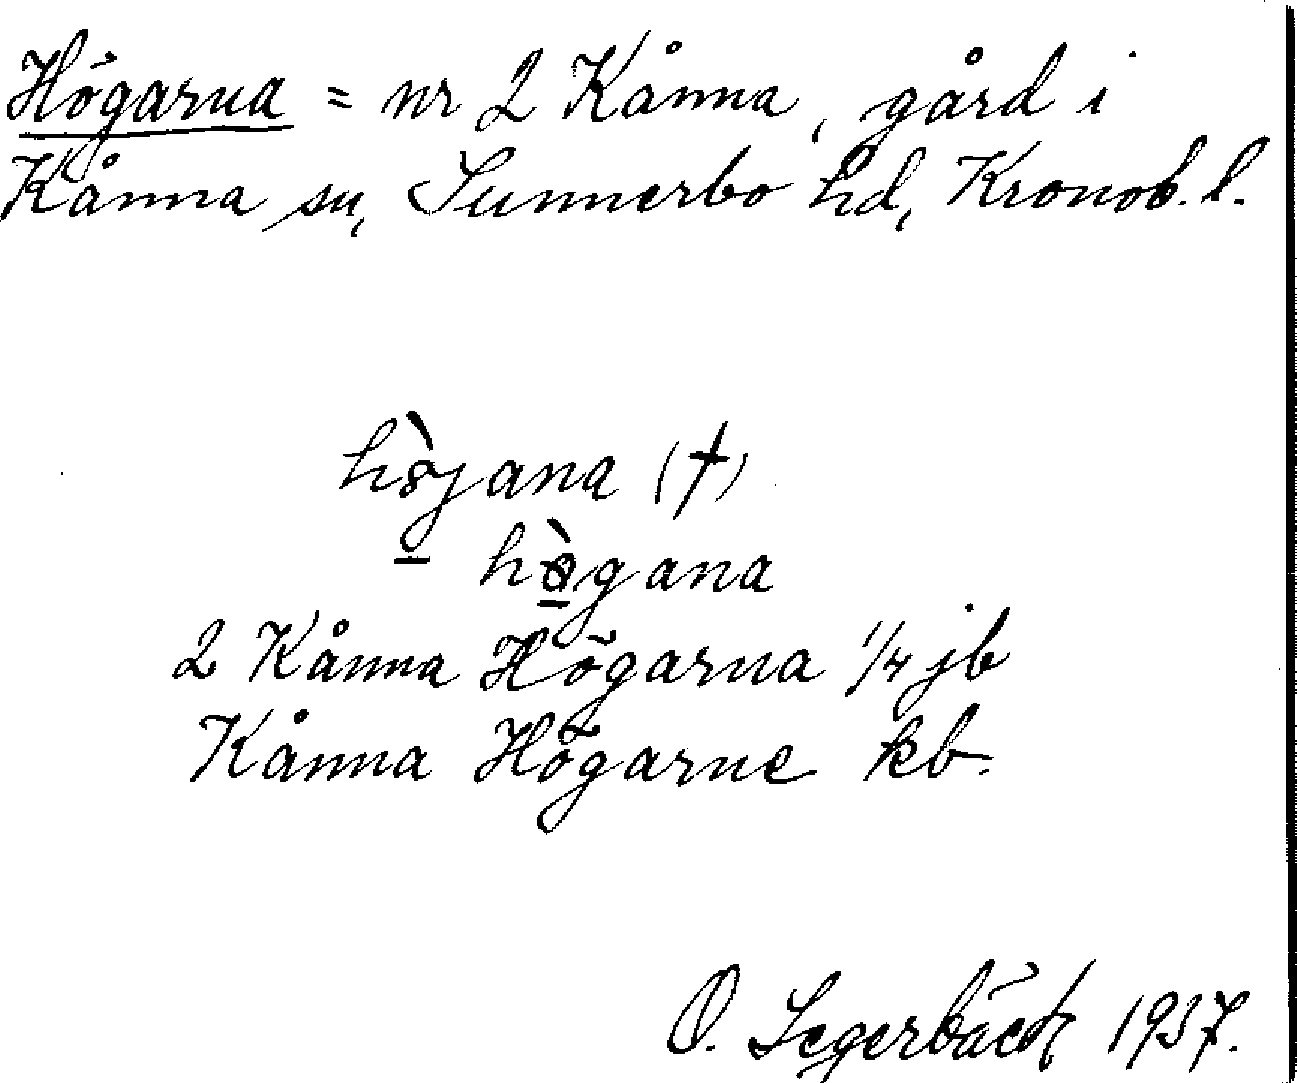 Högarna = nr 2 Kånna, gård i
Kånna sn, Sunnerbo hd, Kronob. l.
hø̀jana (†)
hø̀gana
2 Kånna Högarna 1/4 jb
Kånna Högarne kb.
O. Segerbäck 1937.